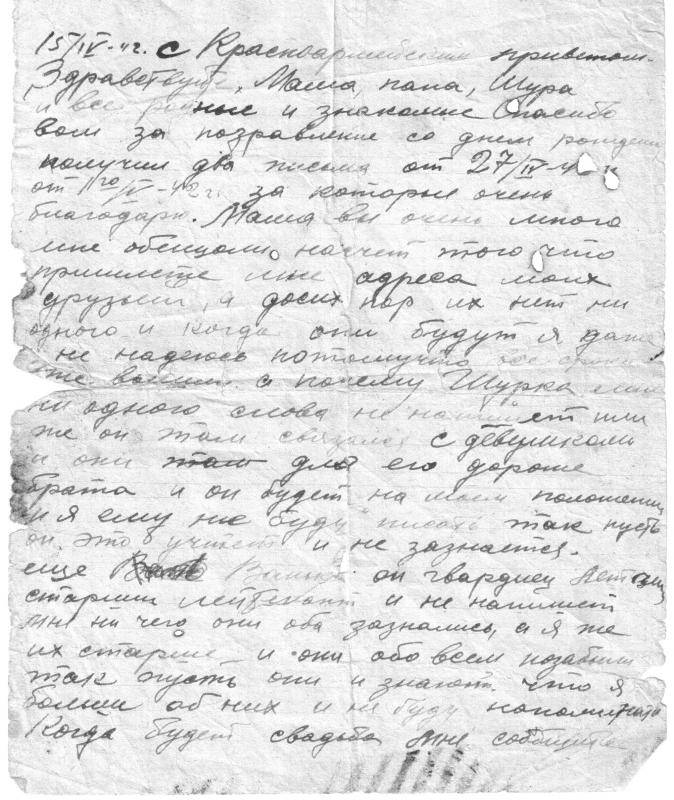 15/IV-42г. с Красноармейским приветом.
Здравствуйте, Мама, папа, Шура
и все родные и знакомые Спасибо
вам за поздравление со днем рождения
получил два письма от 27/IV-4
от 20/IV-42г. за которые очень
благодарю. Мама вы очень много
мне обещали насчет того что
пришлеще мне адреса моих
друзьей, а досих пор их нет ни
одного и когда они будут я даже
не надеюсь потомучто все сроки
уже вышли а почему Шурка мне
ни одного слова не напишет или
же он там связался с девушками
и они там для его дороже
брата и он будет на моем положении
и я ему не буду писать так пусть
он это учтет и не зазнается.
еще Ванька он гвардиец летчик
старший лейтенант и не напишет
мне ни чего они оба зазнались, а я же
их старше и они обо всем позабыли
так пусть они и знают что я
больши об них и не буду напоминать
Когда будет свадьба мне сообщите